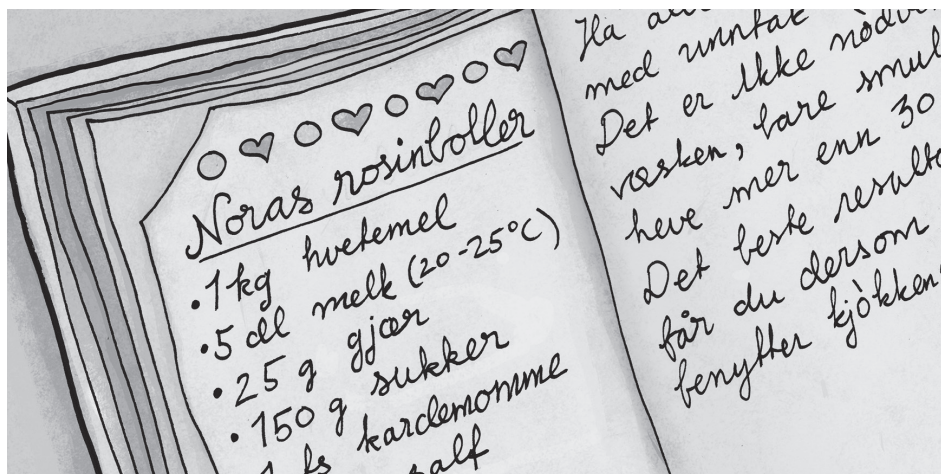 Noras rosinboller
• 1 kg hvetemel
• 5 dl melk (20-25°C)
• 25 g gjær
• 150 g sukker
kardemomme
salt
Ha
med unntak
Det er ikke
væsken, bare
heve mer enn 30
Det beste
får du dersom
benytter